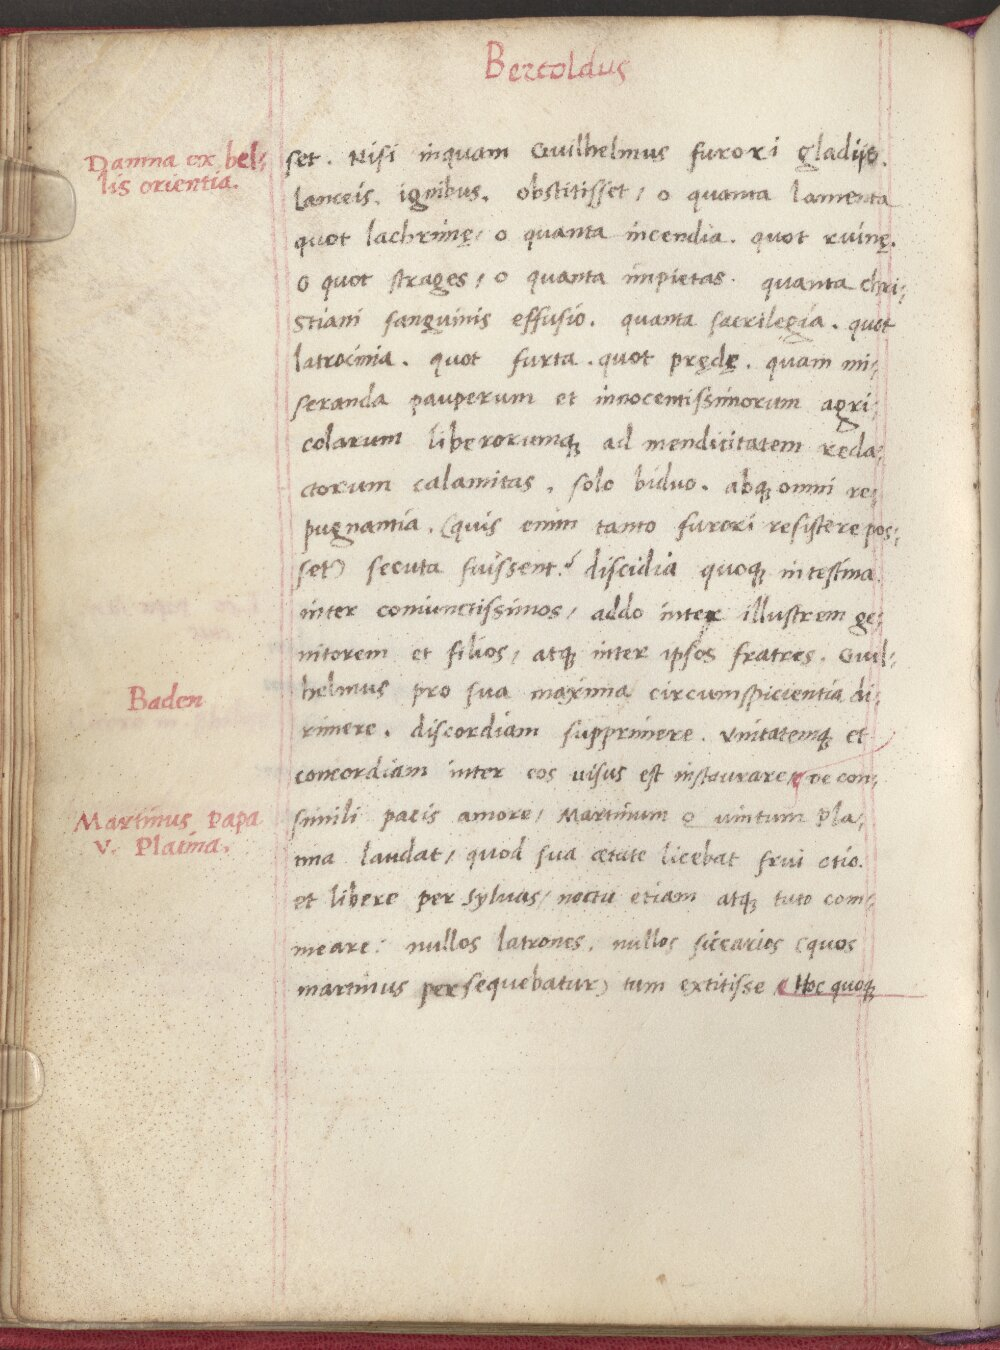 Bertoldus
Damna ex bel:
lis orientia.
set. Nisi inquam Guilhelmus furori gladijs.
lanceis. ignibus. obstitisset / o quanta lamenta
quot lachrimę / o quanta incendia. quot ruinę.
o quot strages / o quanta impietas. quanta chri:
stiani sanguinis effusio. quanta sacrilegia. quot
latrocinia. quot furta. quot pręde. quam mi:
seranda pauperum et innocentissimorum agri:
colarum liberorumqꝫ ad mendicitatem reda:
ctorum calamitas. solo biduo. absqꝫ omni re:
pugnantia. (quis enim tanto furori resistere pos:
set) secuta fuissent? discidia quoqꝫ intestina
inter coniunctissimos / addo inter illustrem ge:
nitorem et filios / atqꝫ inter ipsos fratres. Guil:
Baden
helmus pro sua maxima circumspicientia di:
rimere. discordiam supprimere. vnitatemqꝫ et
concordiam inter eos uisus est instaurare / De con:
Martinus Papa
V. Platina.
simili pacis amore / Martinum quintum Pla:
tina laudat / quod sua ætate licebat frui otio.
et libere per syluas / noctu etiam atqꝫ tuto com:
meare: nullos latrones. nullos sicarios (quos
martinus persequebatur) tum extitisse / Hoc quoqꝫ